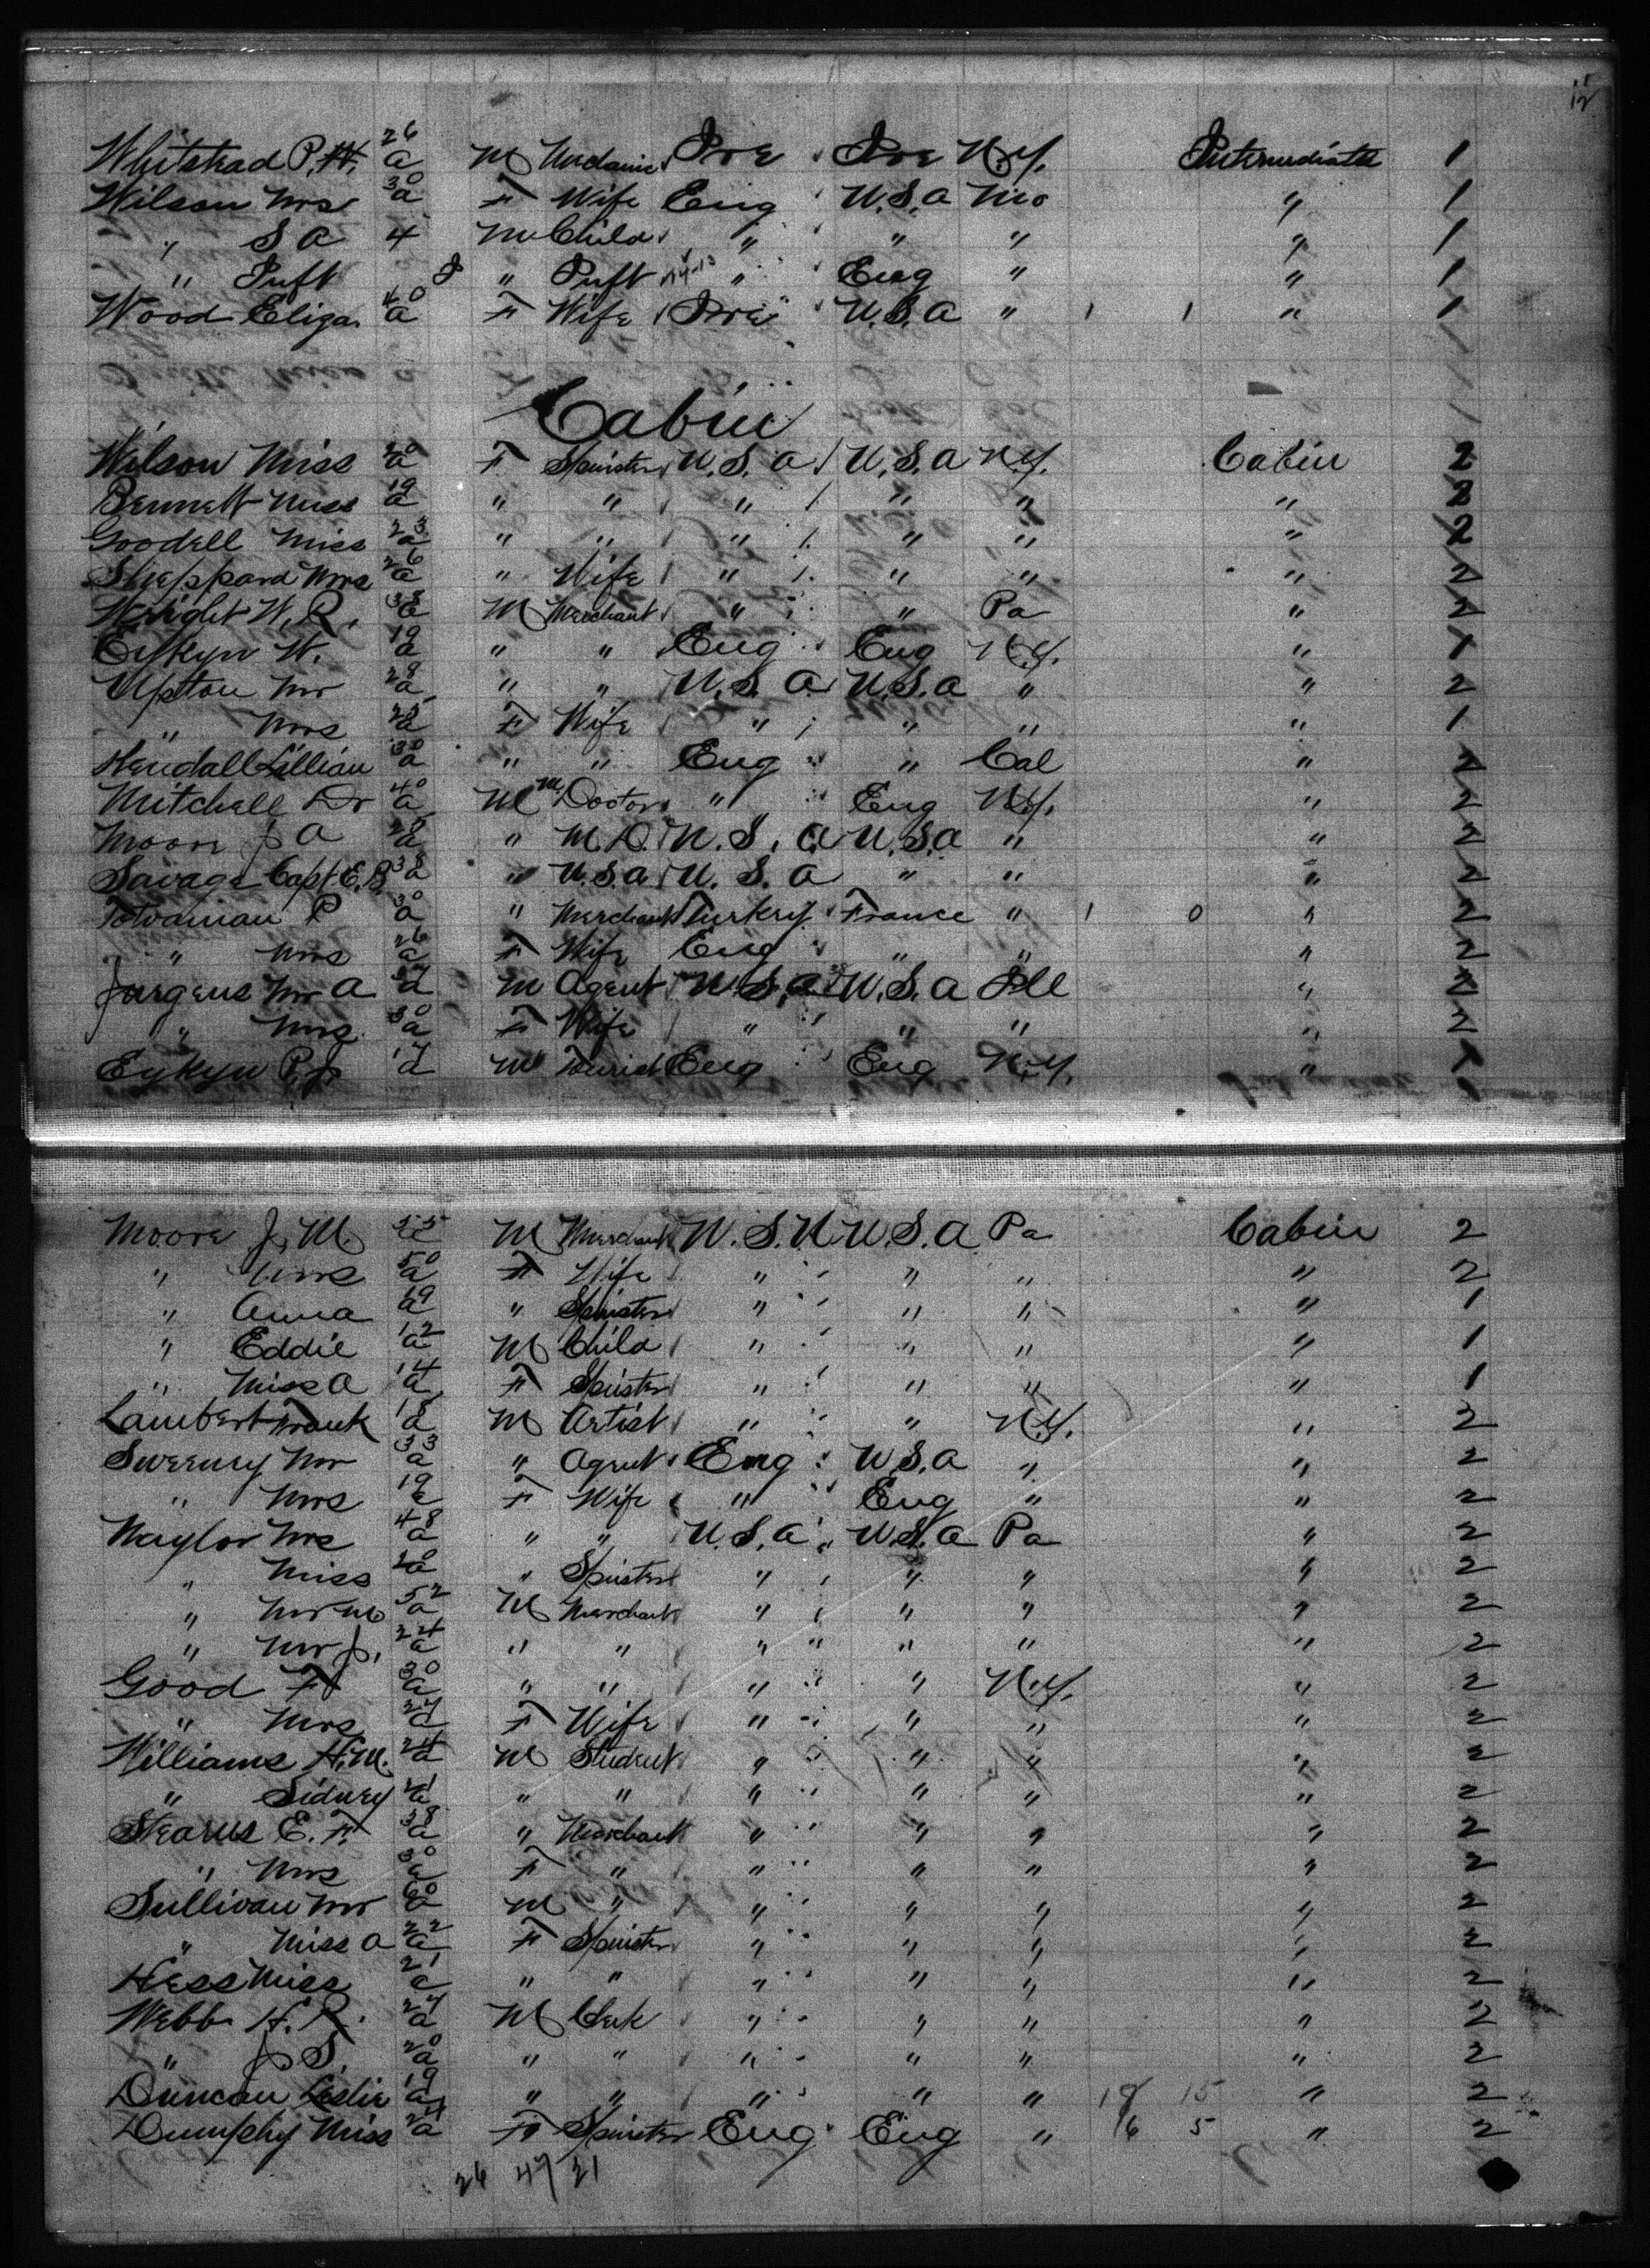 Whitstead P. H. 26 a M Mechanic Ire Ire N.Y. Intermediate 1
Wilson Mrs 30 a F Wife Eng U.S.A Mo " 1
" S A 4 M Child " " " " 1
" Inft " Inft " Eng " " 1
Wood Eliza 40 a F Wife Ire U.S.A " 1 1 " 1
Cabin
Wilson Miss 20 a F Spinster U.S.A U.S.A N.Y. Cabin 2
Bennett Miss 19 a " " " " " " 2
Goodell Miss 23 a " " " " " " 2
Sheppard Mrs 26 a " Wife " " " " 2
Wright W. R. 38 a M Merchant " " Pa " 2
Eykyn W. 19 a " " Eng Eng N.Y. " 1
Upton Mr 28 a " " U.S.A U.S.A " " 2
" Mrs 25 a F Wife " " " " 1
Kendall Lillian 30 a " " Eng " Cal " 2
Mitchell Dr 40 a M Doctor " Eng N.Y. " 2
Moore J A 28 a " M.D. U.S.A U.S.A " " 2
Savage Capt. E. B 38 a " U.S.A U.S.A " " " 2
P 30 a " Merchant Turkey France " 1 0 " 2
" Mrs 26 a F Wife Eng " " " 2
Jurgens Mr A 37 a M Agent U.S.A U.S.A Ill " 2
" Mrs 30 a F Wife " " " " 2
Eykyn P. J. 17 a M Tourist Eng Eng N.Y. " 1
Moore J. M. 55 a M Merchant U.S.A U.S.A Pa Cabin 2
" Mrs 50 a F Wife " " " " 2
" Anna 19 a " Spinster " " " " 1
" Eddie 12 a M Child " " " " 1
" Miss A 14 a F Spinster " " " " 1
Lambert Frank 18 a M Artist " " N.Y. " 2
Sweeney Mr 33 a " Agent Eng U.S.A " " 2
" Mrs 19 a F Wife " Eng " " 2
Naylor Mrs 48 a " " U.S.A U.S.A Pa " 2
" Miss 20 a " Spinster " " " " 2
" Mr 52 a M Merchant " " " " 2
" Mr J. 24 a " " " " " " 2
Good F 30 a " " " " N.Y. " 2
" Mrs 27 a F Wife " " " " 2
Williams H. M. 24 a M Student " " " " 2
" Sidney 21 a " " " " " " 2
Stearns E. F. 38 a " Merchant " " " " 2
" Mrs 30 a F " " " " " 2
Sullivan Mr 60 a M " " " " " 2
" Miss A 22 a F Spinster " " " " 2
Hess Miss 21 a " " " " " " 2
Webb H. R. 27 a M Clerk " " " " 2
" J. S. 20 a " " " " " " 2
Duncan Leslie 19 a " " " " " 18 15 " 2
Dumphy Miss 24 a F Spinster Eng Eng " 6 5 " 2
26 47 21